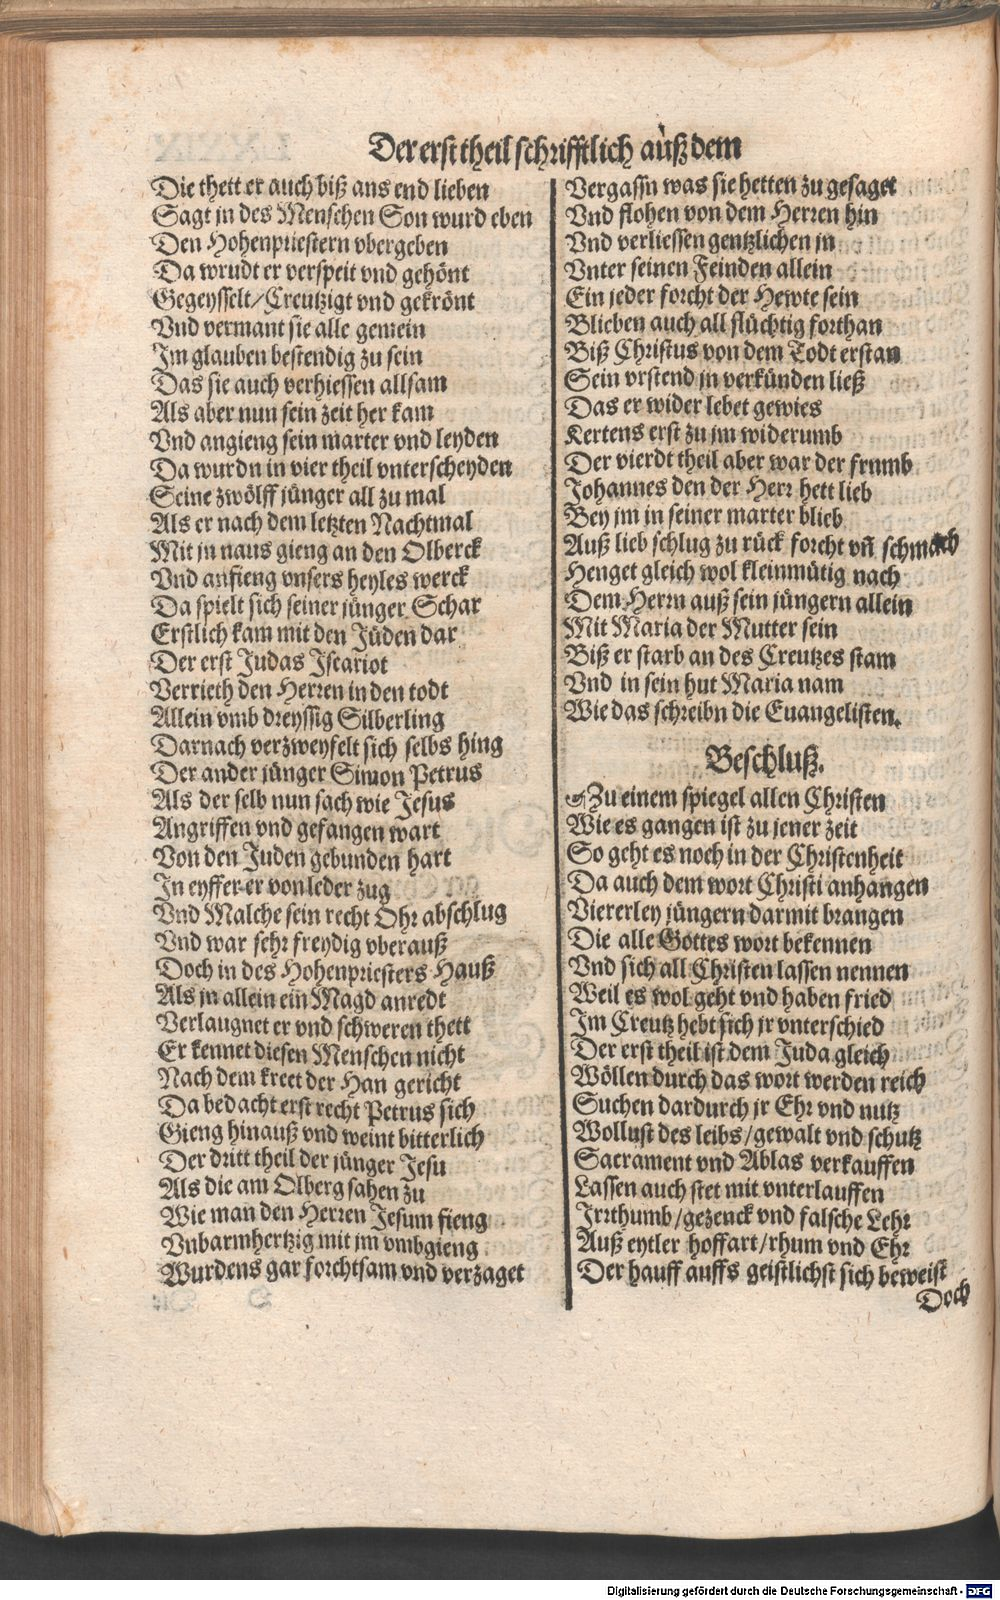 Der erst theil schrifftlich auß dem
Die thett er auch biß ans end lieben
Sagt jn des Menschen Son wurd eben
Den Hohenpriestern vbergeben
Da wrudt er verspeit vnd gehönt
Gegeysselt/Creutzigt vnd gekrönt
Vnd vermant sie alle gemein
Im glauben bestendig zu sein
Das sie auch verhiessen allsam
Als aber nun sein zeit her kam
Vnd angieng sein marter vnd leyden
Da wurdn in vier theil vnterscheyden
Seine zwölff jünger all zu mal
Als er nach dem letzten Nachtmal
Mit jn naus gieng an den Olberck
Vnd anfieng vnsers heyles werck
Da spielt sich seiner jünger Schar
Erstlich kam mit den Jüden dar
Der erst Judas Iscariot
Verrieth den Herren in den todt
Allein vmb dreyssig Silberling
Darnach verzweyfelt sich selbs hing
Der ander jünger Simon Petrus
Als der selb nun sach wie Jesus
Angriffen vnd gefangen wart
Von den Juden gebunden hart
In eyffer er von leder zug
Vnd Malche sein recht Ohr abschlug
Vnd war sehr freydig vberauß
Doch in des Hohenpriesters Hauß
Als jn allein ein Magd anredt
Verlaugnet er vnd schweren thett
Er kennet diesen Menschen nicht
Nach dem kreet der Han gericht
Da bedacht erst recht Petrus sich
Gieng hinauß vnd weint bitterlich
Der dritt theil der jünger Jesu
Als die am Olberg sahen zu
Wie man den Herren Jesum fieng
Vnbarmhertzig mit jm vmbgieng
Wurdens gar forchtsam vnd verzaget
Vergassn was sie hetten zu gesaget
Vnd flohen von dem Herren hin
Vnd verliessen gentzlichen jn
Vnter seinen Feinden allein
Ein jeder forcht der Hewte sein
Blieben auch all flüchtig forthan
Biß Christus von dem Todt erstan
Sein vrstend jn verkünden ließ
Das er wider lebet gewies
Kertens erst zu jm widerumb
Der vierdt theil aber war der frumb
Johannes den der Herr hett lieb
Bey jm in seiner marter blieb
Auß lieb schlug zu rück forcht vñ schmach
Henget gleich wol kleinmütig nach
Dem Herrn auß sein jüngern allein
Mit Maria der Mutter sein
Biß er starb an des Creutzes stam
Vnd in sein hut Maria nam
Wie das schreibn die Euangelisten.
Beschluß.
Zu einem spiegel allen Christen
Wie es gangen ist zu jener zeit
So geht es noch in der Christenheit
Da auch dem wort Christi anhangen
Viererley jüngern darmit brangen
Die alle Gottes wort bekennen
Vnd sich all Christen lassen nennen
Weil es wol geht vnd haben fried
Im Creutz hebt sich jr vnterschied
Der erst theil ist dem Juda gleich
Wöllen durch das wort werden reich
Suchen dardurch jr Ehr vnd nutz
Wollust des leibs/gewalt vnd schutz
Sacrament vnd Ablas verkauffen
Lassen auch stet mit vnterlauffen
Irrthumb/gezenck vnd falsche Lehr
Auß eytler hoffart/rhum vnd Ehr
Der hauff auffs geistlichst sich beweist
Doch
Digitalisierung gefördert durch die Deutsche Forschungsgemeinschaft - DFG